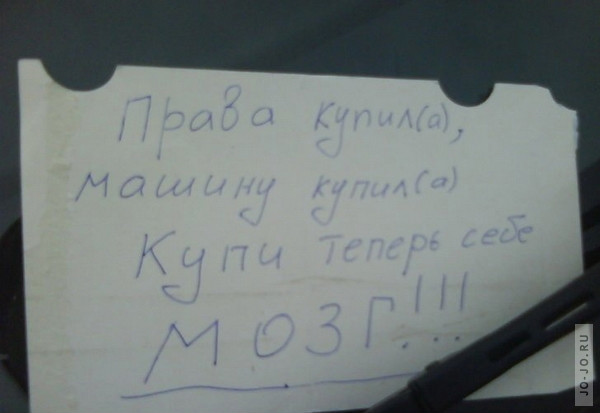 Права купил(а),
машину купил(а)
Купи теперь себе
МОЗГ!!!
JO-JO.RU